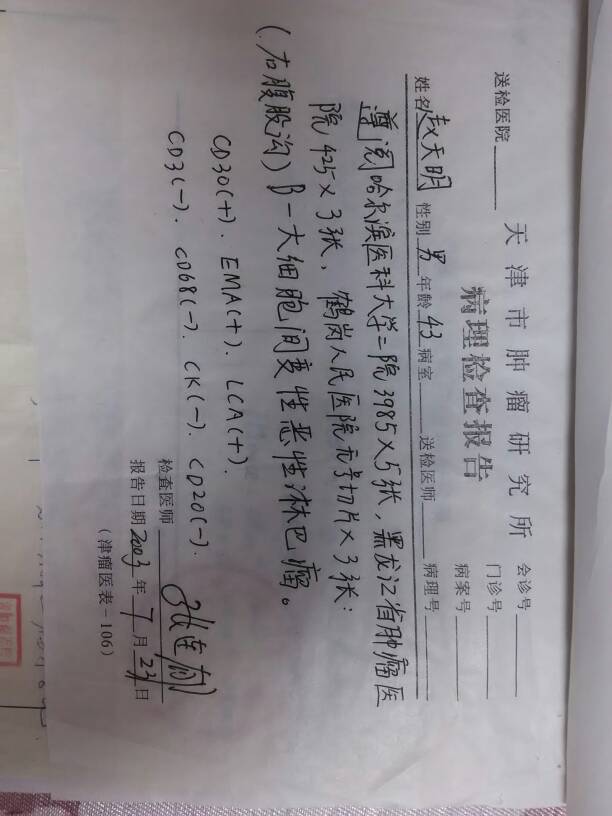 天津市肿瘤研究所
病理检查报告
会诊号
门诊号
病案号
送检医院
姓名 赵天明 性别 男 年龄 43 病室 送检医师 病理号
尊阅哈尔滨医科大学二院3985×5张，黑龙江省肿瘤医
院425×3张，鹤岗人民医院无号切片×3张：
(右腹股沟) B-大细胞间变性恶性淋巴瘤。
CD30(+). EMA(+). LCA(+).
CD3(-). CD68(-). CK(-). CD20(-).
检查医师
报告日期 2003 年 7 月 23 日
(津瘤医表-106)